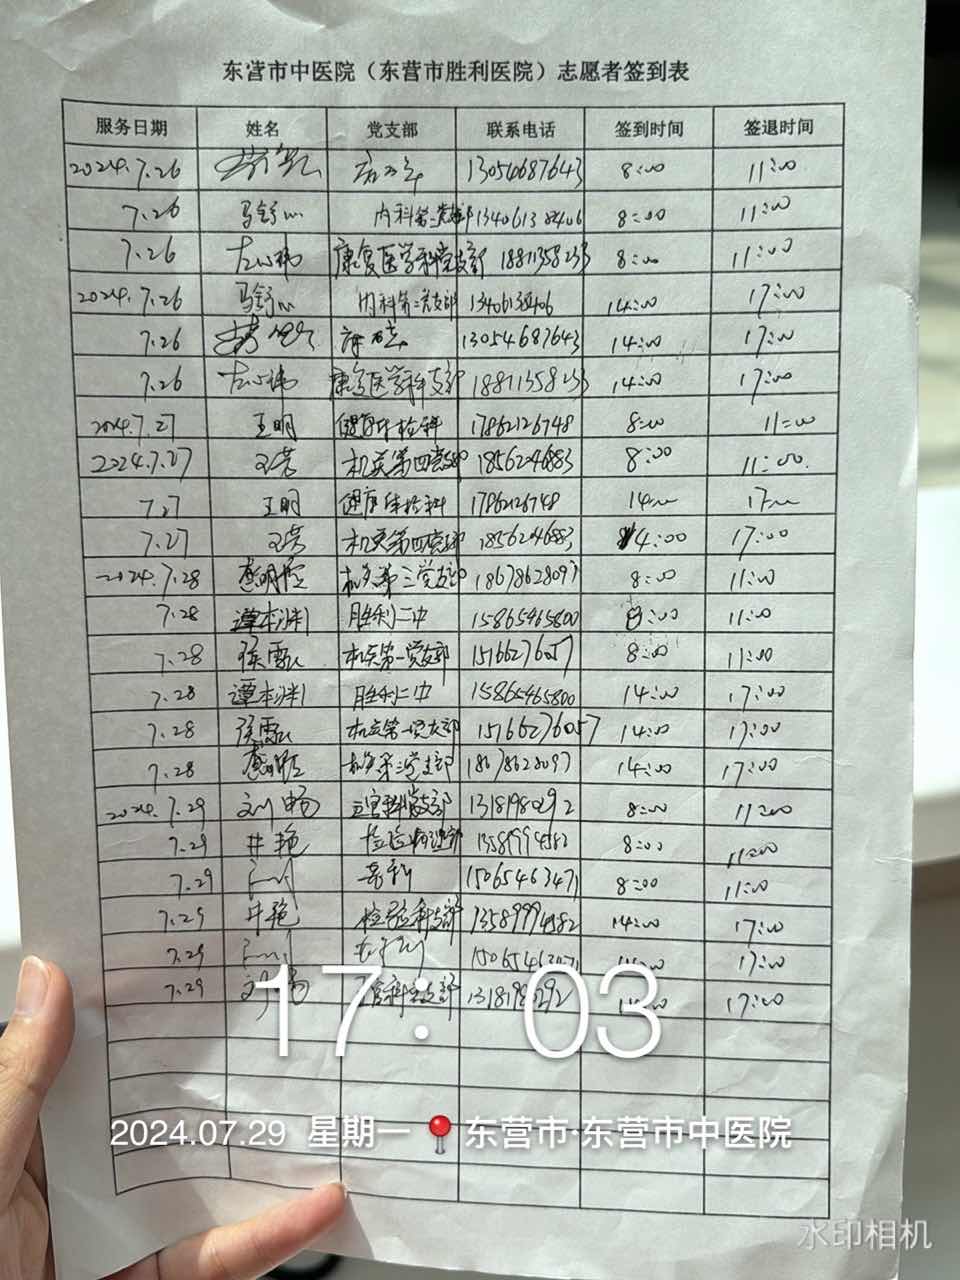 东营市中医院（东营市胜利医院）志愿者签到表
服务日期 姓名 党支部 联系电话 签到时间 签退时间
2024.7.26 13054687643 8:00 11:00
7.26 马舒心 内科第二党支部 13406138406 8:00 11:00
7.26 左心祎 康复医学科党支部 18811358233 8:00 11:00
2024.7.26 马舒心 内科第二党支部 14:00 17:00
7.26 13054687643 14:00 17:00
7.26 左心祎 康复医学科支部 18811358233 14:00 17:00
2024.7.27 王明 健康体检科 17862126748 8:00 11:00
2024.7.27 机关第四党支部 18562046883 8:00 11:00
7.27 王明 健康体检科 17862126748 14:00 17:00
7.27 机关第四党支部 18562046883 14:00 17:00
2024.7.28 机关第三党支部 18678628097 8:00 11:00
7.28 谭本渊 胜利二中 15865465800 8:00 11:00
7.28 侯霞 机关第一党支部 15166276057 8:00 11:00
7.28 谭本渊 胜利二中 15865465800 14:00 17:00
7.28 侯霞 机关第一党支部 15166276057 14:00 17:00
7.28 机关第三党支部 18678628097 14:00 17:00
2024.7.29 刘畅 五官科党支部 13181980292 8:00 11:00
7.29 井艳 13589994582 8:00 11:00
7.29 15065463471 8:00 11:00
7.29 井艳 检验科支部 13589994582 14:00 17:00
7.29 17:00
7.29 刘畅 13181980292 17:00
17:03
2024.07.29 星期一 东营市·东营市中医院
水印相机